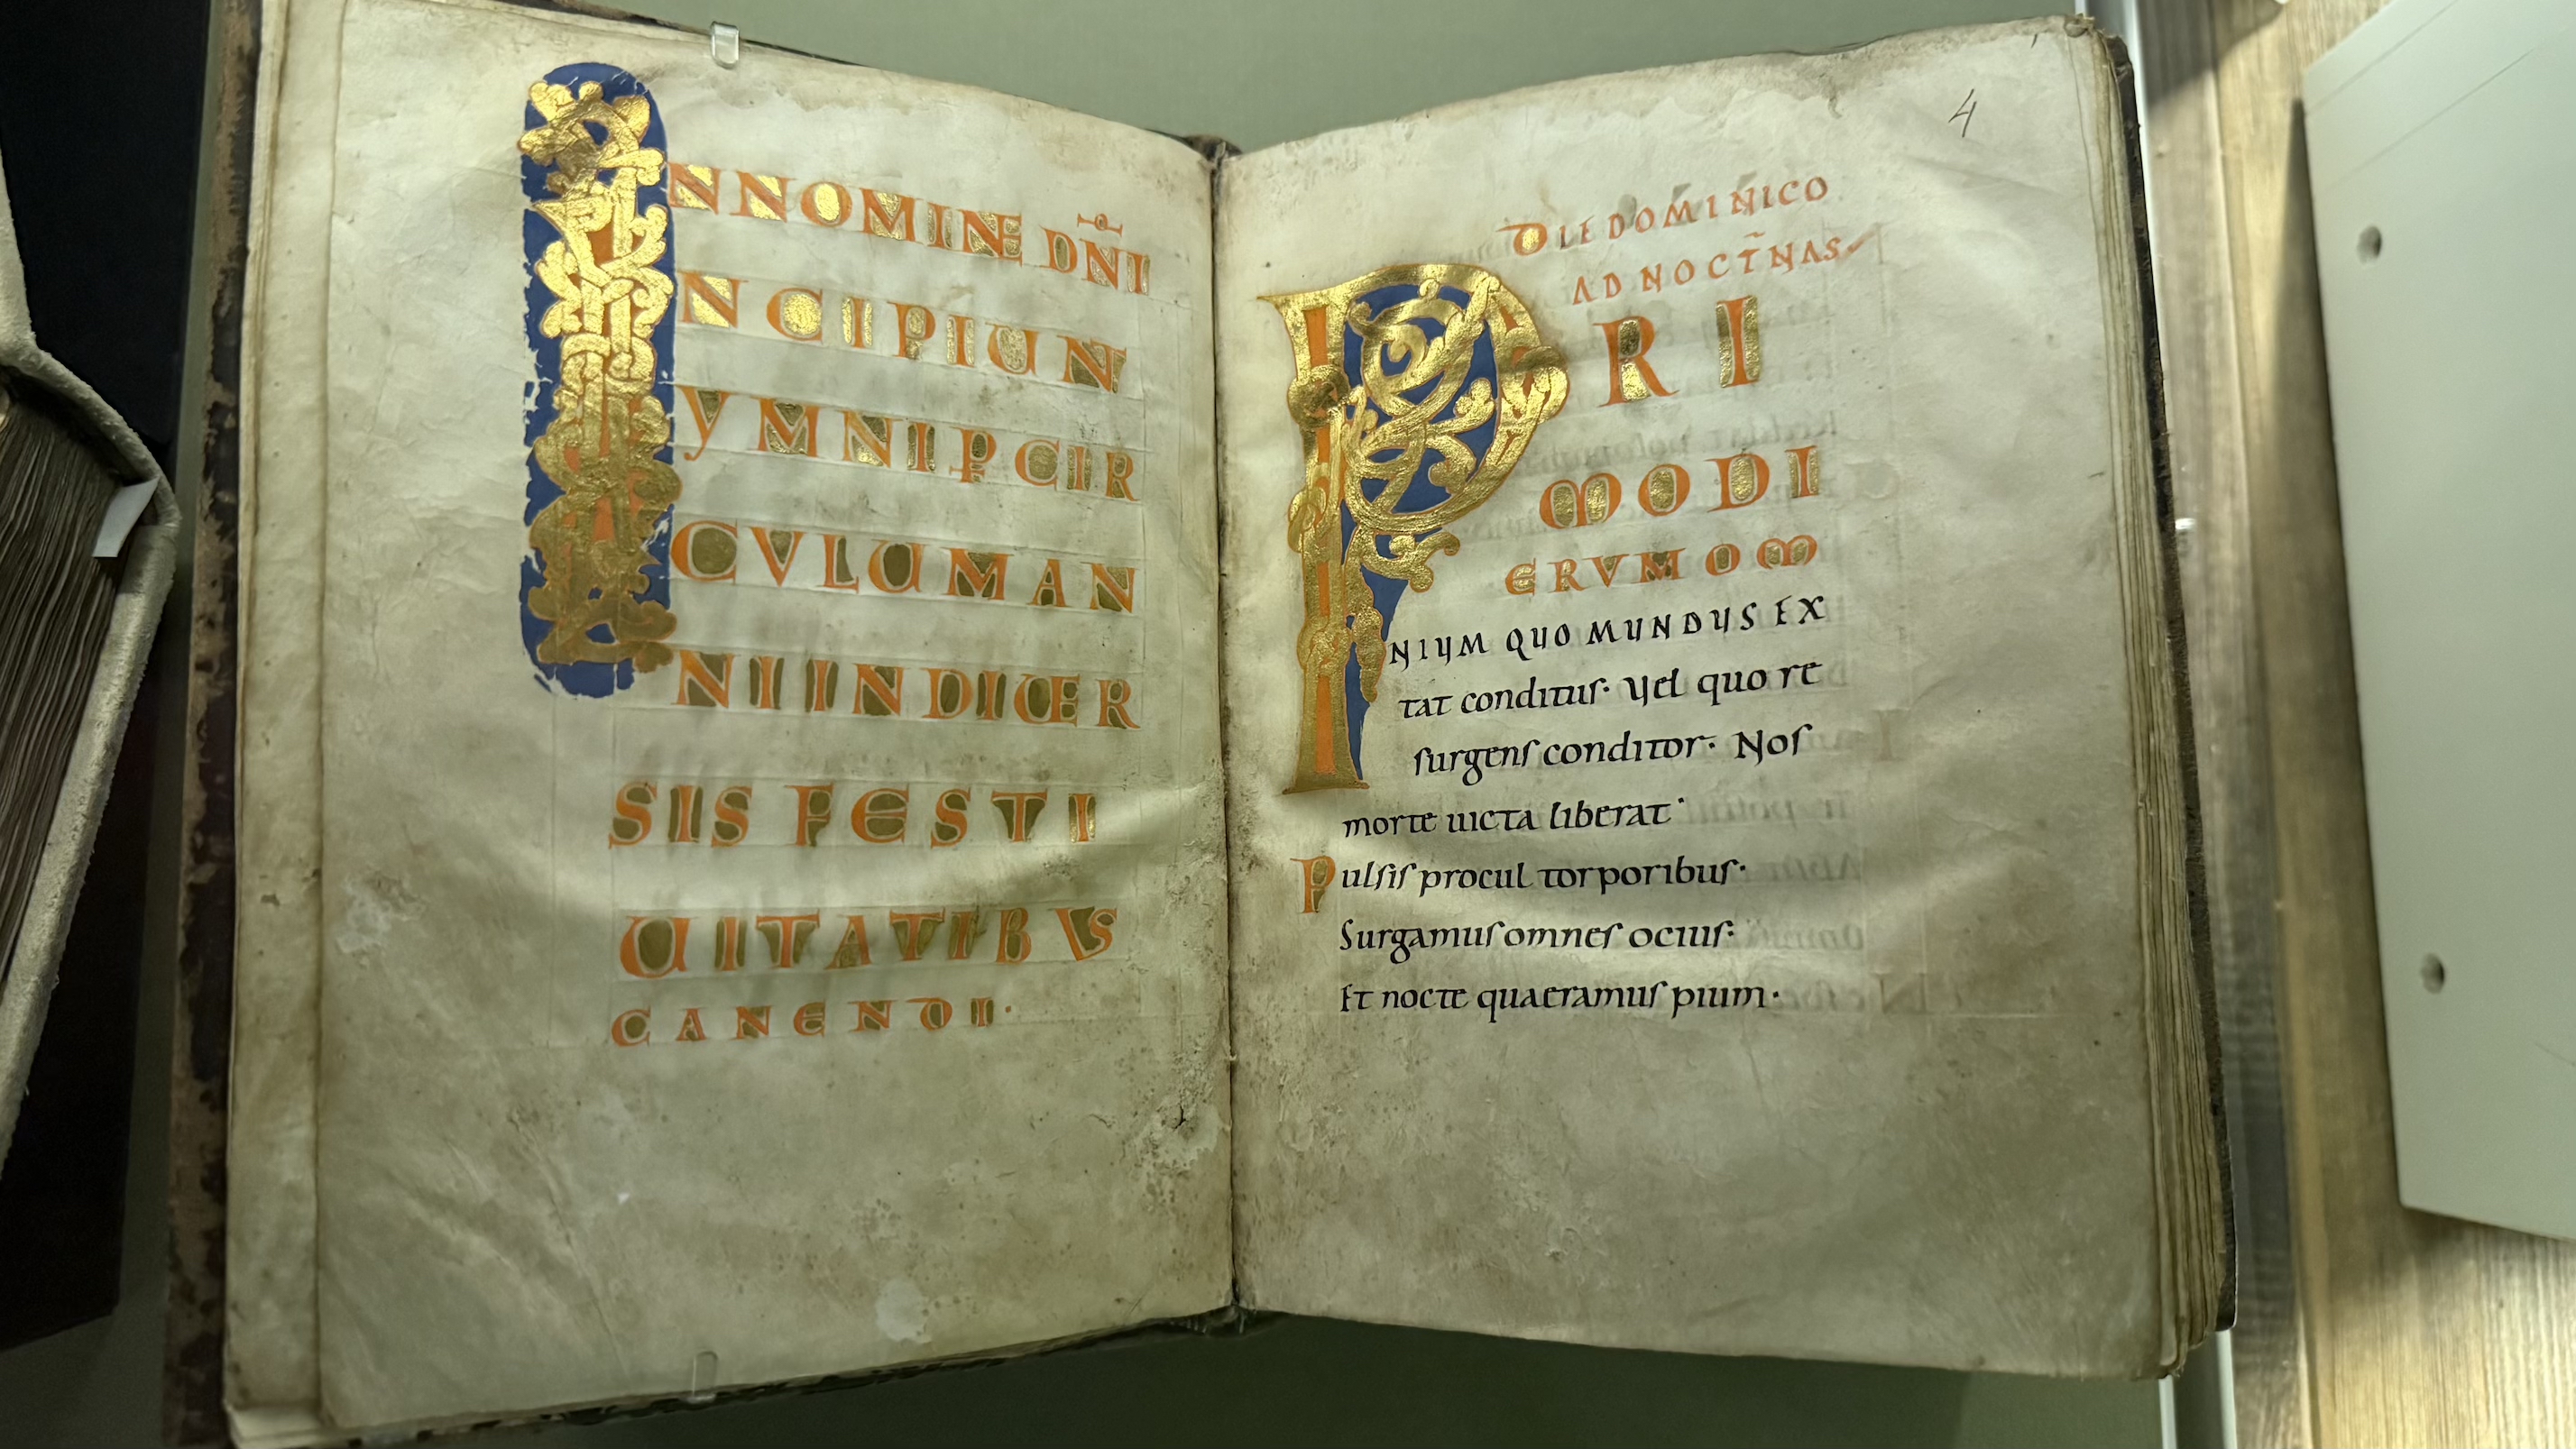 INNOMINE DN̄I
NCIPIUN
YMNI P̱ CIR
CVLUM AN
NI IN DIUER
SIS FESTI
UITATIBVS
CANENDI·
4
DIE DOMINICO
AD NOCT̄NAS
PRI
MO DI
ERVM OM
NIUM QUO MUNDUS EX
tat conditus· Vel quo re
surgens conditor· Nos
morte uicta liberat·
Pulsis procul torporibus·
Surgamus omnes ocius·
Et nocte quaeramus pium·